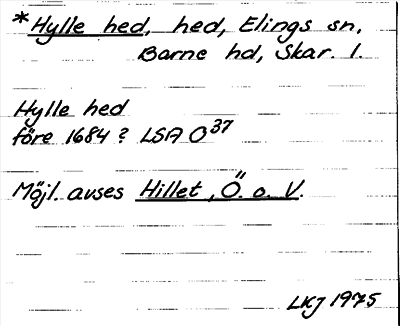 *Hylle hed, hed, Elings sn,
Barne hd, Skar. l.
Hylle hed
före 1684? LSA O37
Möjl. avses Hillet, Ö. o. V.
LKJ 1975